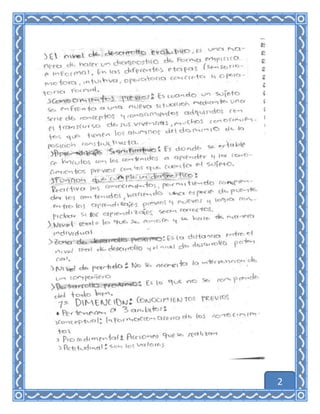 >El nivel de desarrollo evolutivo, es una ma-
nera de hacer un diagnostico de forma empirica
e informal, En las diferentes etapas (sensorio-
motora, intuitiva, operatoria concreta u opera-
toria formal.
>Conocimientos previos: Es cuando un sujeto
se enfrenta a una nueva situación mediante una
serie de conceptos y conocimientos adquiridos con
el transcurso de sus vivencias, muchos conocimien-
tos que tienen los alumnos del dominio de la
posición constructivista.
>Aprendizaje Significativo: Es donde se estable
ce vinculos con los contenidos a aprender y los cono-
cimientos previos con los que cuenta el sujeto.
>Función que cumple un diagnostico:
Reactiva los conocimientos, permitiendo compren-
der los contenidos, haciendo una especie de puente
entre los aprendizajes previos y nuevos y logra com-
probar si los aprendizajes sean correctos.
>Nivel real: lo que se conoce y se hace de manera
individual
>Zona de desarrollo proximo: Es la distancia entre el
nivel real de desarrollo y el nivel de desarrollo poten
cial,
>Nivel de partida: No se necesita la intervencion de
un compañero
>Desarrollo proximo: Es lo que no se comprende
del todo bien.
1ª DIMENCIÓN: CONOCIMIENTOS PREVIOS
• Pertenecen a 3 ambitos:
>Conceptual: Informacion acerca de los conocimien-
tos
> Procedimental: Acciones que se realizan
>Actitudinal: Son los valores
2